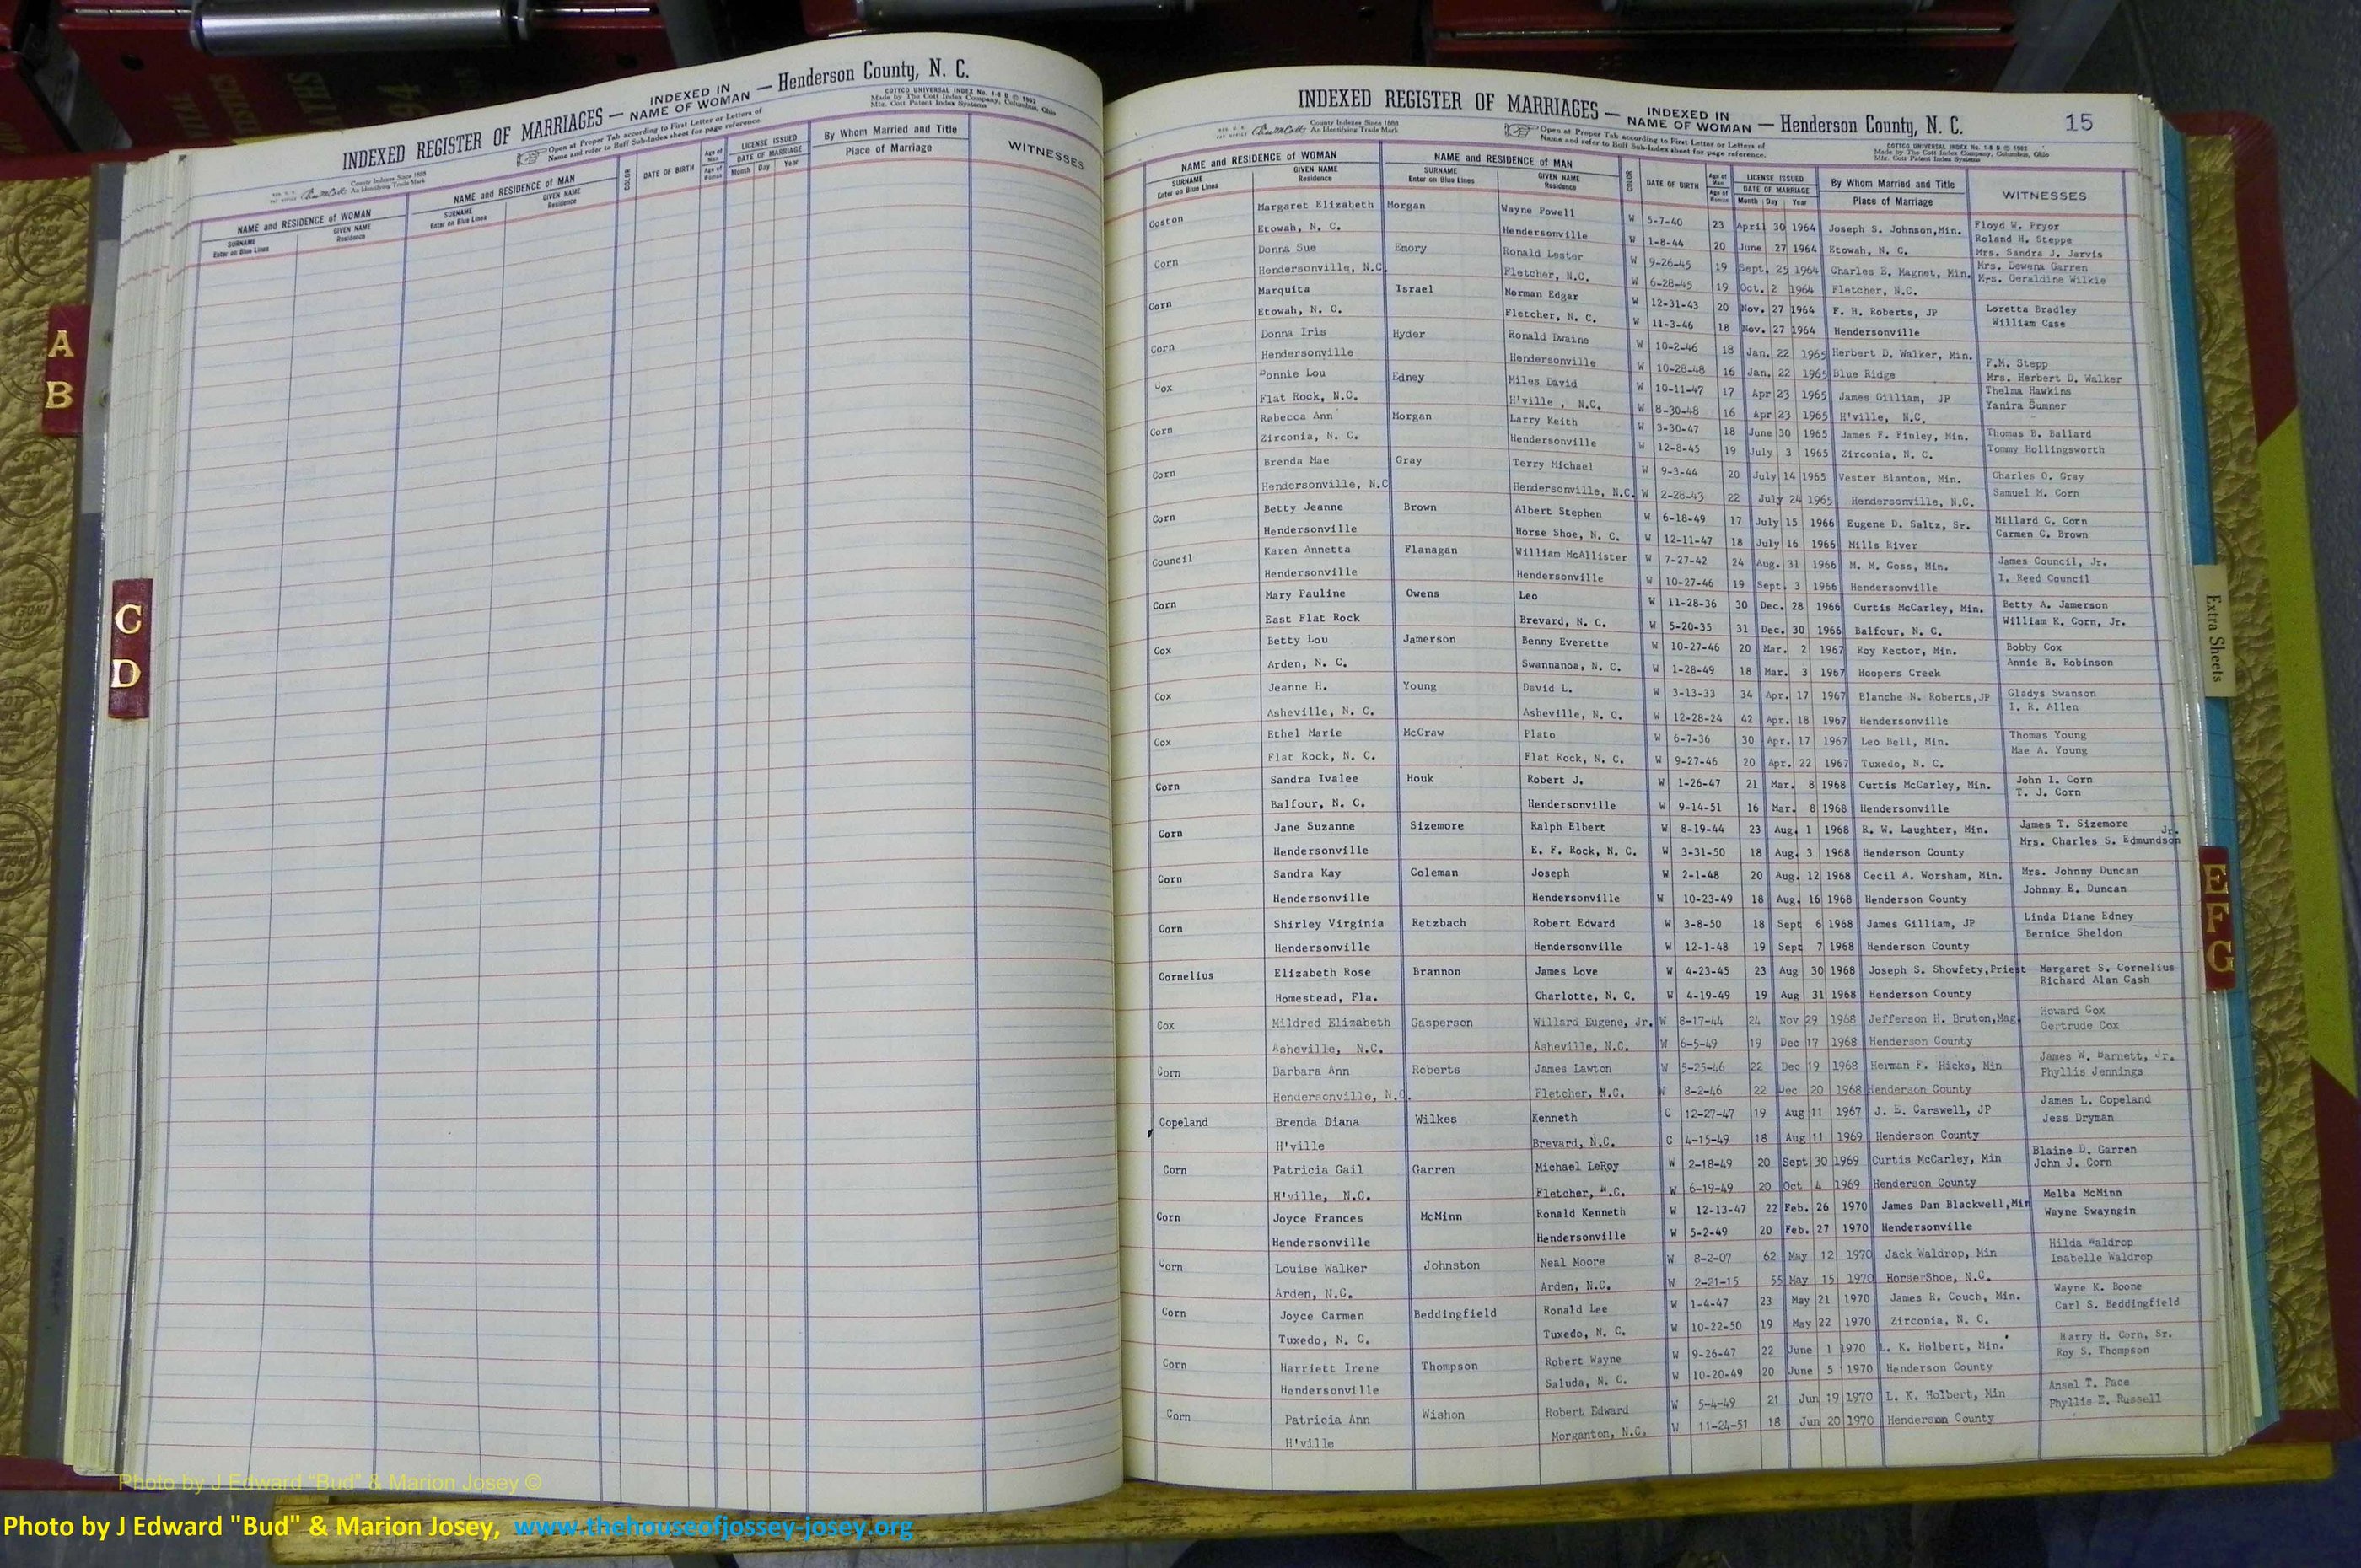 INDEXED REGISTER OF MARRIAGES — INDEXED IN NAME OF WOMAN — Henderson County, N. C.
County Indexes Since 1888
An Identifying Trade Mark
Open at Proper Tab according to First Letter or Letters of
Name and refer to Buff Sub-Index sheet for page reference.
COTTCO UNIVERSAL INDEX No. 1-8 B © 1962
Made by The Cott Index Company, Columbus, Ohio
Mfg. Cott Patent Index Systems
NAME and RESIDENCE of WOMAN NAME and RESIDENCE of MAN COLOR DATE OF BIRTH Age of Man LICENSE ISSUED By Whom Married and Title WITNESSES
SURNAME GIVEN NAME SURNAME GIVEN NAME Age of Woman DATE OF MARRIAGE Place of Marriage
Enter on Blue Lines Residence Enter on Blue Lines Residence Month Day Year
A
B
C
D
INDEXED REGISTER OF MARRIAGES — INDEXED IN NAME OF WOMAN — Henderson County, N. C. 15
County Indexes Since 1888
An Identifying Trade Mark
Open at Proper Tab according to First Letter or Letters of
Name and refer to Buff Sub-Index sheet for page reference.
COTTCO UNIVERSAL INDEX No. 1-8 B © 1962
Made by The Cott Index Company, Columbus, Ohio
Mfg. Cott Patent Index Systems
NAME and RESIDENCE of WOMAN NAME and RESIDENCE of MAN COLOR DATE OF BIRTH Age of Man LICENSE ISSUED By Whom Married and Title WITNESSES
SURNAME GIVEN NAME SURNAME GIVEN NAME Age of Woman DATE OF MARRIAGE Place of Marriage
Enter on Blue Lines Residence Enter on Blue Lines Residence Month Day Year
Coston Margaret Elizabeth Morgan Wayne Powell W 5-7-40 23 April 30 1964 Joseph S. Johnson,Min. Floyd W. Pryor
Etowah, N. C. Hendersonville W 1-8-44 20 June 27 1964 Etowah, N. C. Roland H. Steppe
Corn Donna Sue Emory Ronald Lester W 9-26-45 19 Sept. 25 1964 Charles E. Magnet, Min. Mrs. Sandra J. Jarvis
Mrs. Dewena Garren
Hendersonville, N.C. Fletcher, N.C. W 6-28-45 19 Oct. 2 1964 Fletcher, N.C. Mrs. Geraldine Wilkie
Corn Marquita Israel Norman Edgar W 12-31-43 20 Nov. 27 1964 F. H. Roberts, JP Loretta Bradley
Etowah, N. C. Fletcher, N. C. W 11-3-46 18 Nov. 27 1964 Hendersonville William Case
Corn Donna Iris Hyder Ronald Dwaine W 10-2-46 18 Jan. 22 1965 Herbert D. Walker, Min. F.M. Stepp
Hendersonville Hendersonville W 10-28-48 16 Jan. 22 1965 Blue Ridge Mrs. Herbert D. Walker
Cox Donnie Lou Edney Miles David W 10-11-47 17 Apr 23 1965 James Gilliam, JP Thelma Hawkins
Flat Rock, N.C. H'ville , N.C. W 8-30-48 16 Apr 23 1965 H'ville, N.C. Yanira Sumner
Corn Rebecca Ann Morgan Larry Keith W 3-30-47 18 June 30 1965 James F. Finley, Min. Thomas B. Ballard
Zirconia, N. C. Hendersonville W 12-8-45 19 July 3 1965 Zirconia, N. C. Tommy Hollingsworth
Corn Brenda Mae Gray Terry Michael W 9-3-44 20 July 14 1965 Vester Blanton, Min. Charles O. Gray
Hendersonville, N.C Hendersonville, N.C. W 2-28-43 22 July 24 1965 Hendersonville, N.C. Samuel M. Corn
Corn Betty Jeanne Brown Albert Stephen W 6-18-49 17 July 15 1966 Eugene D. Saltz, Sr. Millard C. Corn
Hendersonville Horse Shoe, N. C. W 12-11-47 18 July 16 1966 Mills River Carmen C. Brown
Council Karen Annetta Flanagan William McAllister W 7-27-42 24 Aug. 31 1966 M. M. Goss, Min. James Council, Jr.
Hendersonville Hendersonville W 10-27-46 19 Sept. 3 1966 Hendersonville I. Reed Council
Corn Mary Pauline Owens Leo W 11-28-36 30 Dec. 28 1966 Curtis McCarley, Min. Betty A. Jamerson
East Flat Rock Brevard, N. C. W 5-20-35 31 Dec. 30 1966 Balfour, N. C. William K. Corn, Jr.
Cox Betty Lou Jamerson Benny Everette W 10-27-46 20 Mar. 2 1967 Roy Rector, Min. Bobby Cox
Arden, N. C. Swannanoa, N. C. W 1-28-49 18 Mar. 3 1967 Hoopers Creek Annie B. Robinson
Cox Jeanne H. Young David L. W 3-13-33 34 Apr. 17 1967 Blanche N. Roberts,JP Gladys Swanson
Asheville, N. C. Asheville, N. C. W 12-28-24 42 Apr. 18 1967 Hendersonville I. R. Allen
Cox Ethel Marie McCraw Plato W 6-7-36 30 Apr. 17 1967 Leo Bell, Min. Thomas Young
Flat Rock, N. C. Flat Rock, N. C. W 9-27-46 20 Apr. 22 1967 Tuxedo, N. C. Mae A. Young
Corn Sandra Ivalee Houk Robert J. W 1-26-47 21 Mar. 8 1968 Curtis McCarley, Min. John I. Corn
Balfour, N. C. Hendersonville W 9-14-51 16 Mar. 8 1968 Hendersonville T. J. Corn
Corn Jane Suzanne Sizemore Ralph Elbert W 8-19-44 23 Aug. 1 1968 R. W. Laughter, Min. James T. Sizemore
Hendersonville E. F. Rock, N. C. W 3-31-50 18 Aug. 3 1968 Henderson County Mrs. Charles S. Edmundson Jr.
Corn Sandra Kay Coleman Joseph W 2-1-48 20 Aug. 12 1968 Cecil A. Worsham, Min. Mrs. Johnny Duncan
Hendersonville Hendersonville W 10-23-49 18 Aug. 16 1968 Henderson County Johnny E. Duncan
Corn Shirley Virginia Retzbach Robert Edward W 3-8-50 18 Sept 6 1968 James Gilliam, JP Linda Diane Edney
Hendersonville Hendersonville W 12-1-48 19 Sept 7 1968 Henderson County Bernice Sheldon
Cornelius Elizabeth Rose Brannon James Love W 4-23-45 23 Aug 30 1968 Joseph S. Showfety,Priest Margaret S. Cornelius
Homestead, Fla. Charlotte, N. C. W 4-19-49 19 Aug 31 1968 Henderson County Richard Alan Gash
Cox Mildred Elizabeth Gasperson Willard Eugene, Jr. W 8-17-44 24 Nov 29 1968 Jefferson H. Bruton,Mag. Howard Cox
Asheville, N.C. Asheville, N.C. W 6-5-49 19 Dec 17 1968 Henderson County Gertrude Cox
Corn Barbara Ann Roberts James Lawton W 5-25-46 22 Dec 19 1968 Herman F. Hicks, Min James W. Barnett, Jr.
Hendersonville, N.C. Fletcher, N.C. W 8-2-46 22 Dec 20 1968 Henderson County Phyllis Jennings
Copeland Brenda Diana Wilkes Kenneth C 12-27-47 19 Aug 11 1967 J. E. Carswell, JP James L. Copeland
H'ville Brevard, N.C. C 4-15-49 18 Aug 11 1969 Henderson County Jess Dryman
Corn Patricia Gail Garren Michael LeRoy W 2-18-49 20 Sept 30 1969 Curtis McCarley, Min Blaine D. Garren
H'ville, N.C. Fletcher, N.C. W 6-19-49 20 Oct 4 1969 Henderson County John J. Corn
Corn Joyce Frances McMinn Ronald Kenneth W 12-13-47 22 Feb. 26 1970 James Dan Blackwell,Min Melba McMinn
Hendersonville Hendersonville W 5-2-49 20 Feb. 27 1970 Hendersonville Wayne Swayngin
Corn Louise Walker Johnston Neal Moore W 8-2-07 62 May 12 1970 Jack Waldrop, Min Hilda Waldrop
Arden, N.C. Arden, N.C. W 2-21-15 55 May 15 1970 Horse Shoe, N.C. Isabelle Waldrop
Corn Joyce Carmen Beddingfield Ronald Lee W 1-4-47 23 May 21 1970 James R. Couch, Min. Wayne K. Boone
Tuxedo, N. C. Tuxedo, N. C. W 10-22-50 19 May 22 1970 Zirconia, N. C. Carl S. Beddingfield
Corn Harriett Irene Thompson Robert Wayne W 9-26-47 22 June 1 1970 L. K. Holbert, Min. Harry H. Corn, Sr.
Hendersonville Saluda, N. C. W 10-20-49 20 June 5 1970 Henderson County Roy S. Thompson
Corn Patricia Ann Wishon Robert Edward W 5-4-49 21 Jun 19 1970 L. K. Holbert, Min Ansel T. Pace
H'ville Morganton, N.C. W 11-24-51 18 Jun 20 1970 Henderson County Phyllis E. Russell
Extra Sheets
E
F
G
Photo by J Edward "Bud" & Marion Josey ©
Photo by J Edward "Bud" & Marion Josey, www.thehouseofjossey-josey.org